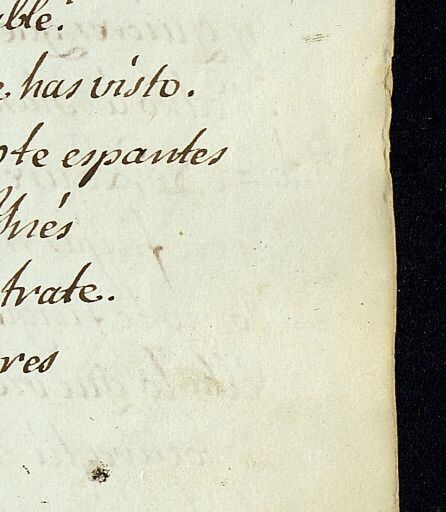 able.
has visto.
te espantes
Ynés
trate.
res